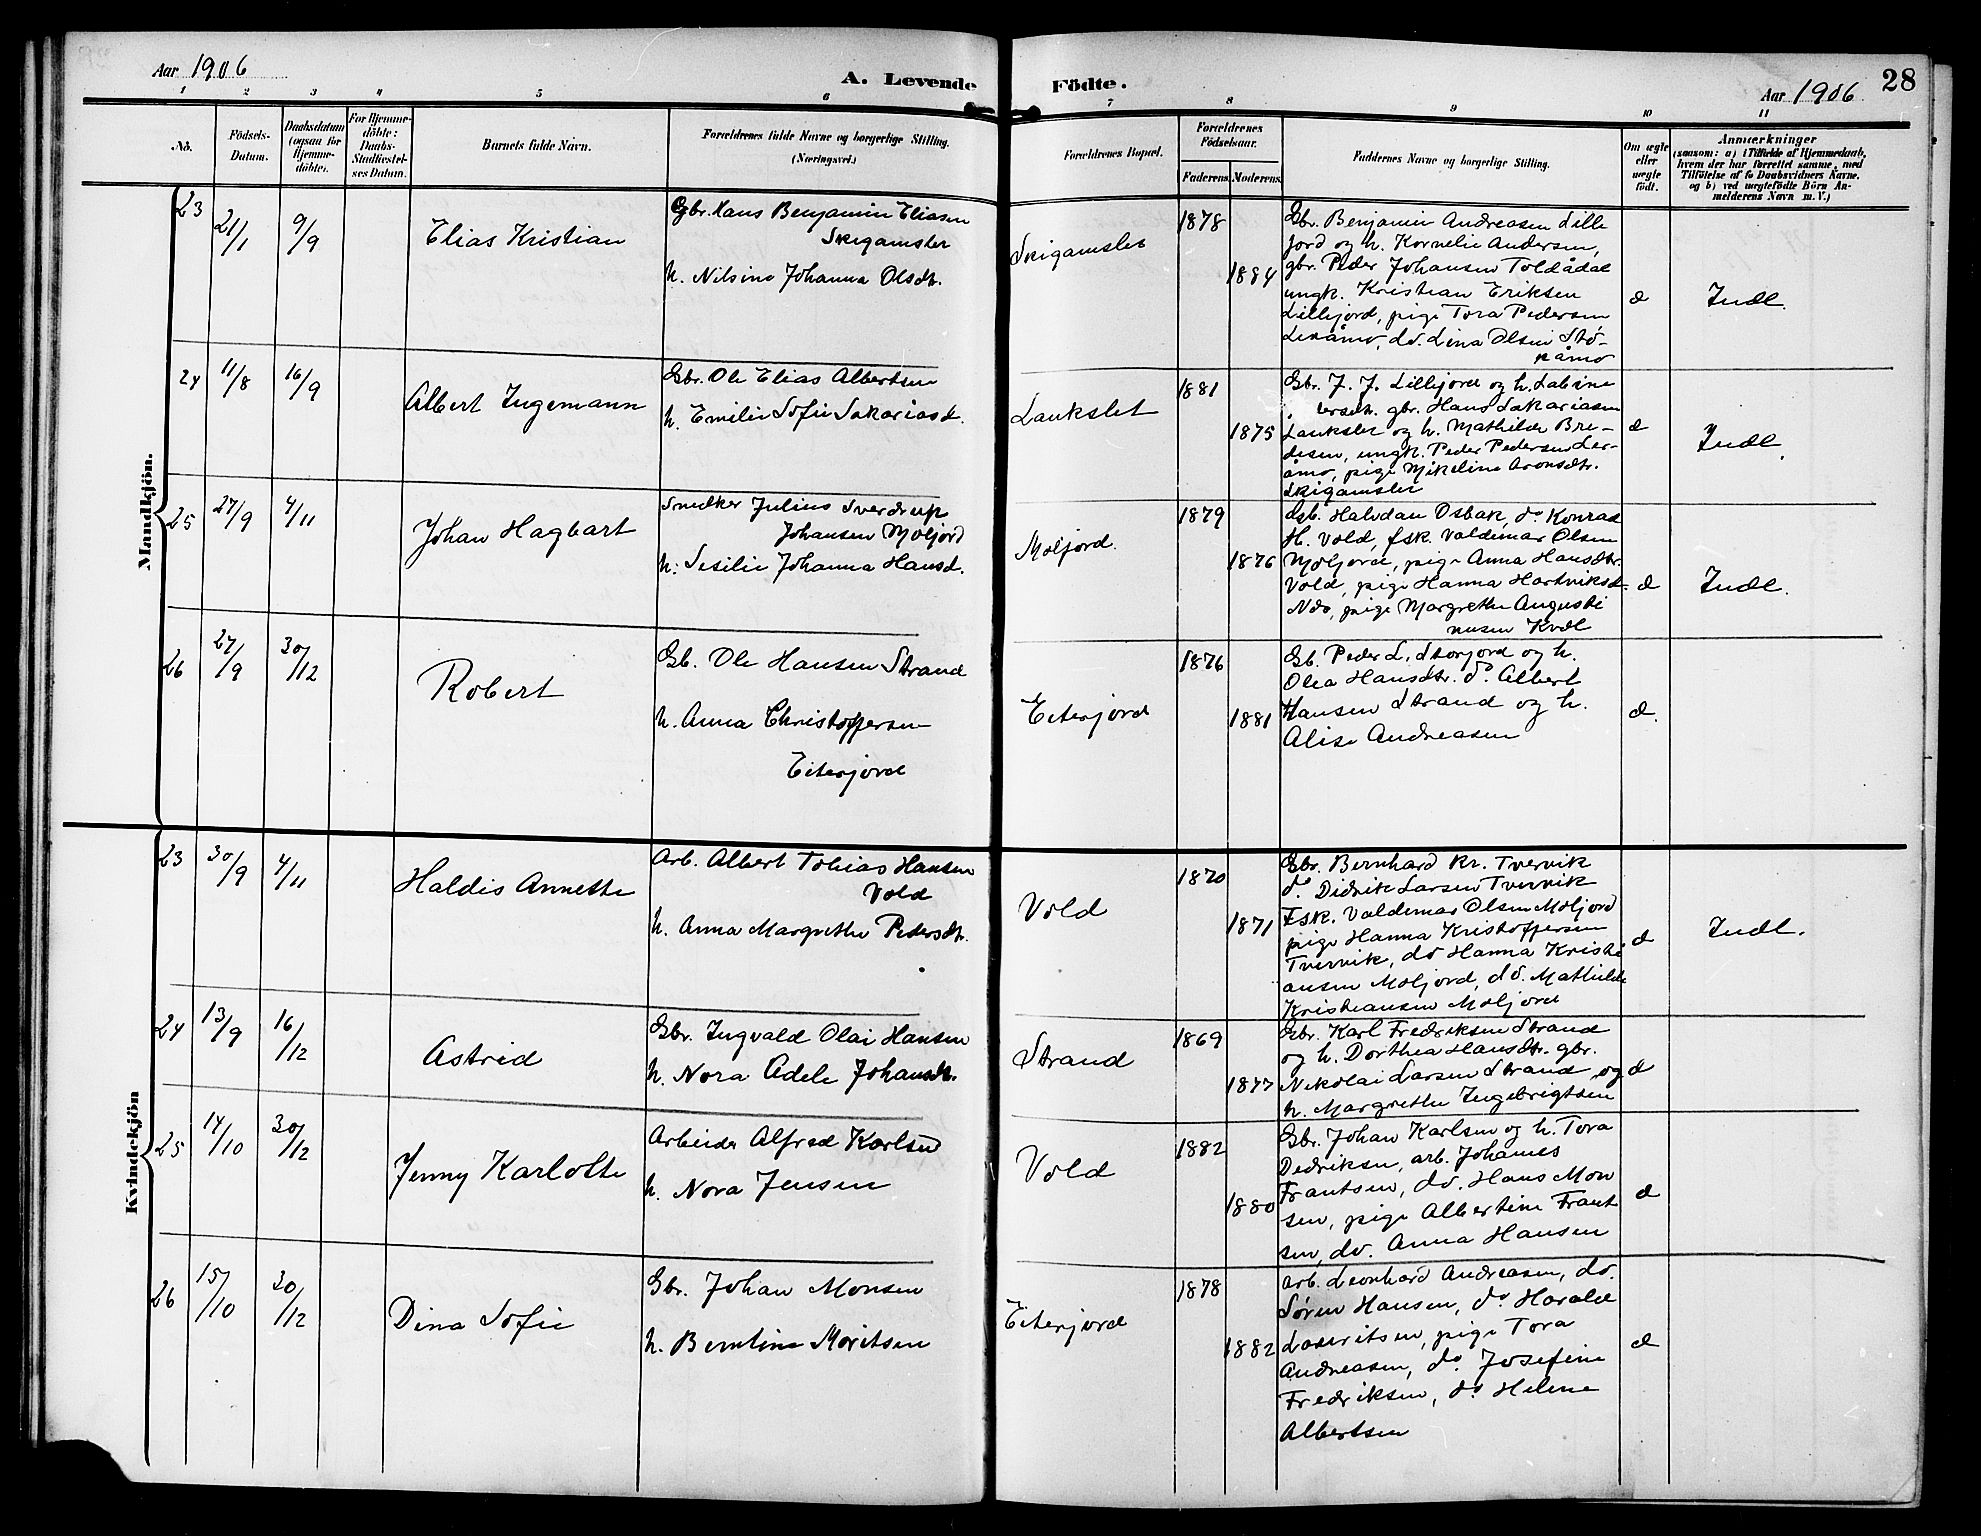 Aar 1906
A. Levende Födte.
Aar 1906
28
1 2 3 4 5 6 7 8 9 10 11
No.
Födsels-
Datum.
Daabsdatum
(ogsaa for
Hjemme-
döbte).
For Hjemme-
döbte:
Daabs-
Stadfæstel-
ses Datum.
Barnets fulde Navn.
Forældrenes fulde Navne og borgerlige Stilling.
(Næringsvei.)
Forældrenes Bopæl.
Forældrenes
Födselsaar.
Faderens. Moderens.
Faddernes Navne og borgerlige Stilling.
Om ægte
eller
uægte
födt.
Anmærkninger
(saasom: a) i Tilfælde af Hjemmedaab,
hvem der har forrettet samme, med
Tilföielse af to Daabsvidners Navne.
og b) ved uægtefödte Börn An-
melderens Navn m. V.)
Mandkjön.
23
21/1
9/9
Elias Kristian
Gbr. Hans Benjamin Eliasen
Skigamslet
h. Nilsine Johanna Olsdt.
Skigamslet
1878
1884
Gbr. Benjamin Andreasen Lille
jord og h. Kornelie Andersen,
gbr. Peder Johansen Toldådal
ungk. Kristian Eriksen
Lillejord, pige Tora Pedersen
Leråmo, do. Lina Olsen Stö-
råmo
e
Indl.
24
11/8
16/9
Albert Ingemann
Gbr. Ole Elias Albertsen
h. Emilie Sofie Sakariasd.
Laukslet
1881
1875
Gbr. J. J. Lillejord og h. Labine
gbr. Hans Sakariasen
Laukslet og h. Mathilde Bre-
desen, ungk. Peder Pedersen Ler-
åmo, pige Mikeline Aronsdtr.
Skigamslet
e
Indl.
25
27/9
4/11
Johan Hagbart
Snedker Julius Sverdrup
Johansen Moljord
h. Sesilie Johanna Hansd.
Moljord.
1879
1876
Gsb. Halvdan Osbak, do Konrad
H. Vold, fsk. Valdemar Olsen
Moljord, pige Anna Hansdtr.
Vold, pige Hanna Hartviksd.
Næs, pige Margrethe Augusti
nusen Kvæl
e
Indl.
26
27/9
30/12
Robert
Gb. Ole Hansen Strand
h. Anna Christoffersen
Eiterjord
Eiterjord
1876
1881
Gb. Peder L. Storjord og h.
Olea Hansdtr. do. Albert
Hansen Strand og h.
Alise Andreasen
e.
Kvindekjön
23
30/9
4/11
Haldis Annette
Arb. Albert Tobias Hansen
Vold
h. Anna Margrethe Pedersdtr.
Vold
1870
1871
Gbr. Bernhard Kr. Tvervik
do. Didrik Larsen Tvervik
Fsk. Valdemar Olsen Moljord
pige Hanna Kristoffersen
Tvervik, do Hanna Kristi
ansen Moljord, do. Mathilde
Kristiansen Moljord
e
Indl.
24
13/9
16/12
Astrid
Gbr. Ingvald Olai Hansen
h. Nora Adele Johansdt.
Strand
1869
1877
Gbr. Karl Fredriksen Strand
og h. Dorthea Hansdtr. gbr.
Nikolai Larsen Strand og
h. Margrethe Ingebrigtsen
e
25
14/10
30/12
Jenny Karlotte
Arbeider Alfred Karlsen
h. Nora Jensen
Vold
1882
1880
Gbr. Johan Karlsen og h. Tora
Dedriksen, arb. Johannes
Frantsen, do. Hans Mon
sen, pige Albertine Frant
sen, do. Anna Hansen
e
26
15/10
30/12
Dina Sofie
Gbr. Johan Monsen
h. Berntine Moritsen
Eiterjord
1878
1882
Arb. Leonhard Andreasen, do.
Sören Hansen, do Harald
Lauritsen, pige Tora
Andreasen, do. Josefine
Fredriksen, do Helene
Albertsen
e